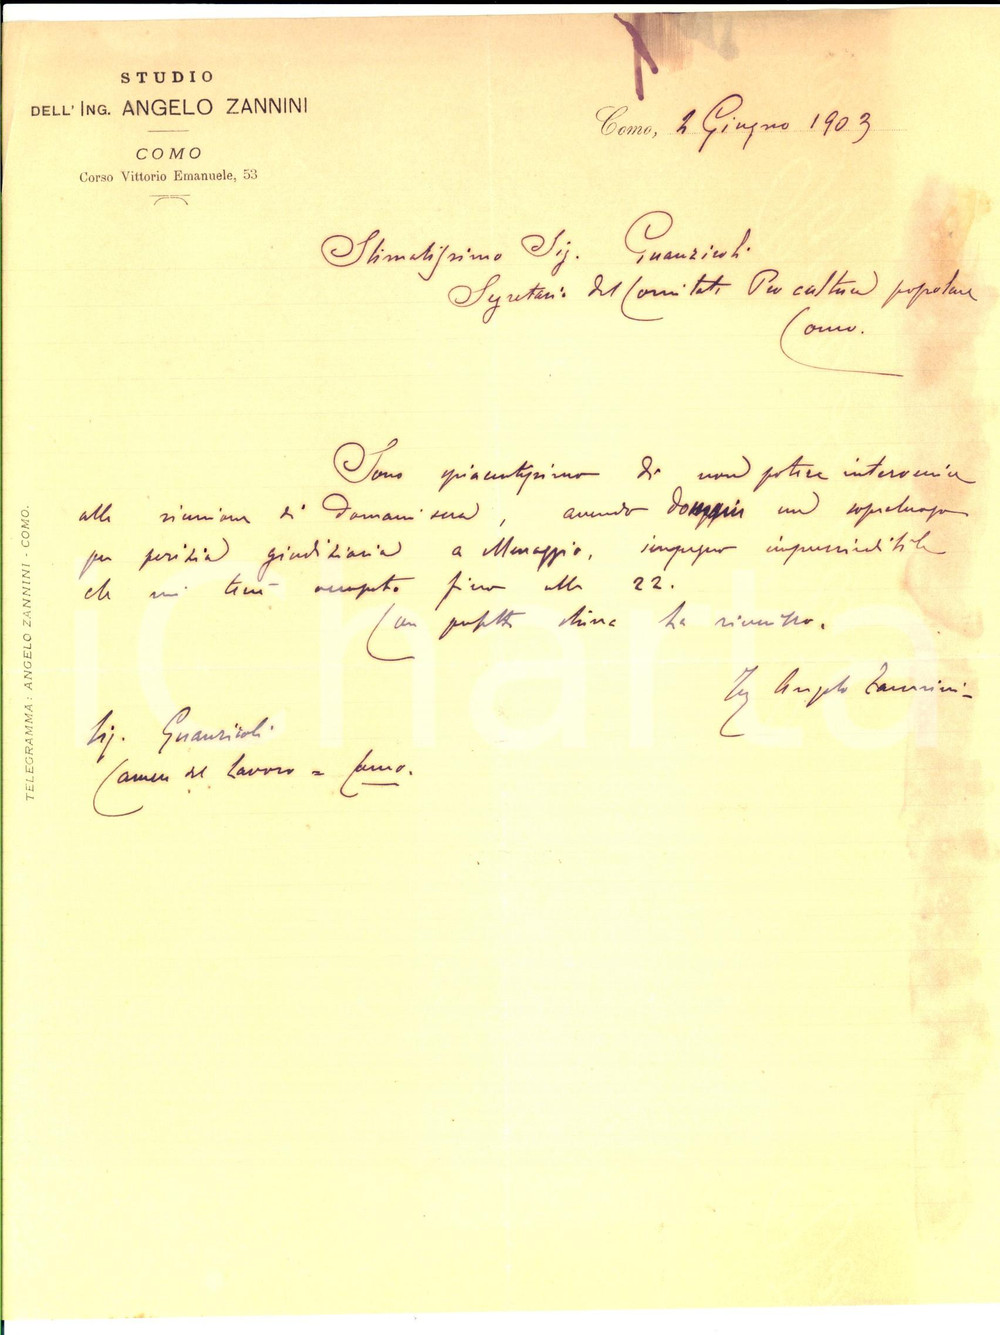 STUDIO
DELL' ING. ANGELO ZANNINI
COMO
Corso Vittorio Emanuele, 53
Como, 2 Giugno 1903
Stimatissimo Sig. Guanziroli
Segretario del Comitato Pro cultura popolare
Como.
Sono spiacentissimo di non potere intervenire
alla riunione di domani sera, avendo un sopraluogo
per perizia giudiziaria a Menaggio, impegno imprescindibile
che mi terrà occupato fino alle 22.
Con perfetta stima La riverisco.
Ing Angelo Zannini
Sig. Guanziroli
Camera del Lavoro = Como.
TELEGRAMMA: ANGELO ZANNINI - COMO.
iCharta